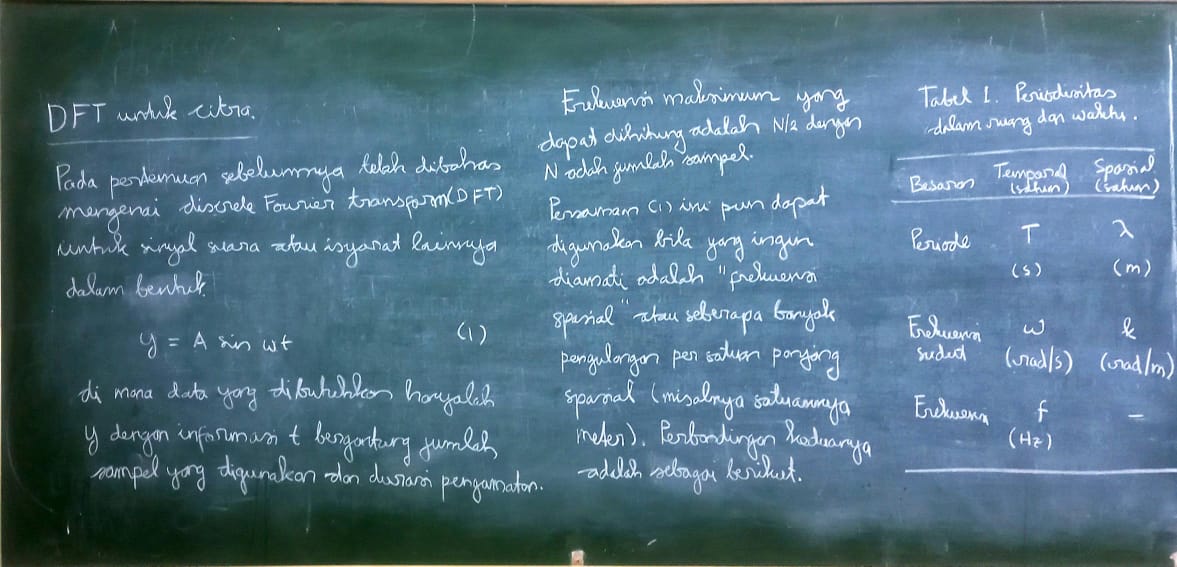 DFT untuk citra.
Pada pertemuan sebelumnya telah dibahas
mengenai discrete Fourier transform (DFT)
untuk sinyal suara atau isyarat lainnya
dalam bentuk
y = A sin ωt (1)
di mana data yang dibutuhkan hanyalah
y dengan informasi t bergantung jumlah
sampel yang digunakan dan durasi pengamatan.
Frekuensi maksimum yang
dapat dihitung adalah N/2 dengan
N adah jumlah sampel.
Persamaan (1) ini pun dapat
digunakan bila yang ingin
diamati adalah "frekuensi
spasial" atau seberapa banyak
pengulangan per satuan panjang
spasial (misalnya satuannya
meter). Perbandingan keduanya
adalah sebagai berikut.
Tabel 1. Periodisitas
dalam ruang dan waktu.
Besaran Temporal (satuan) Spasial (satuan)
Periode T λ
(s) (m)
Frekuensi ω k
sudut (rad/s) (rad/m)
Frekuensi f –
(Hz)